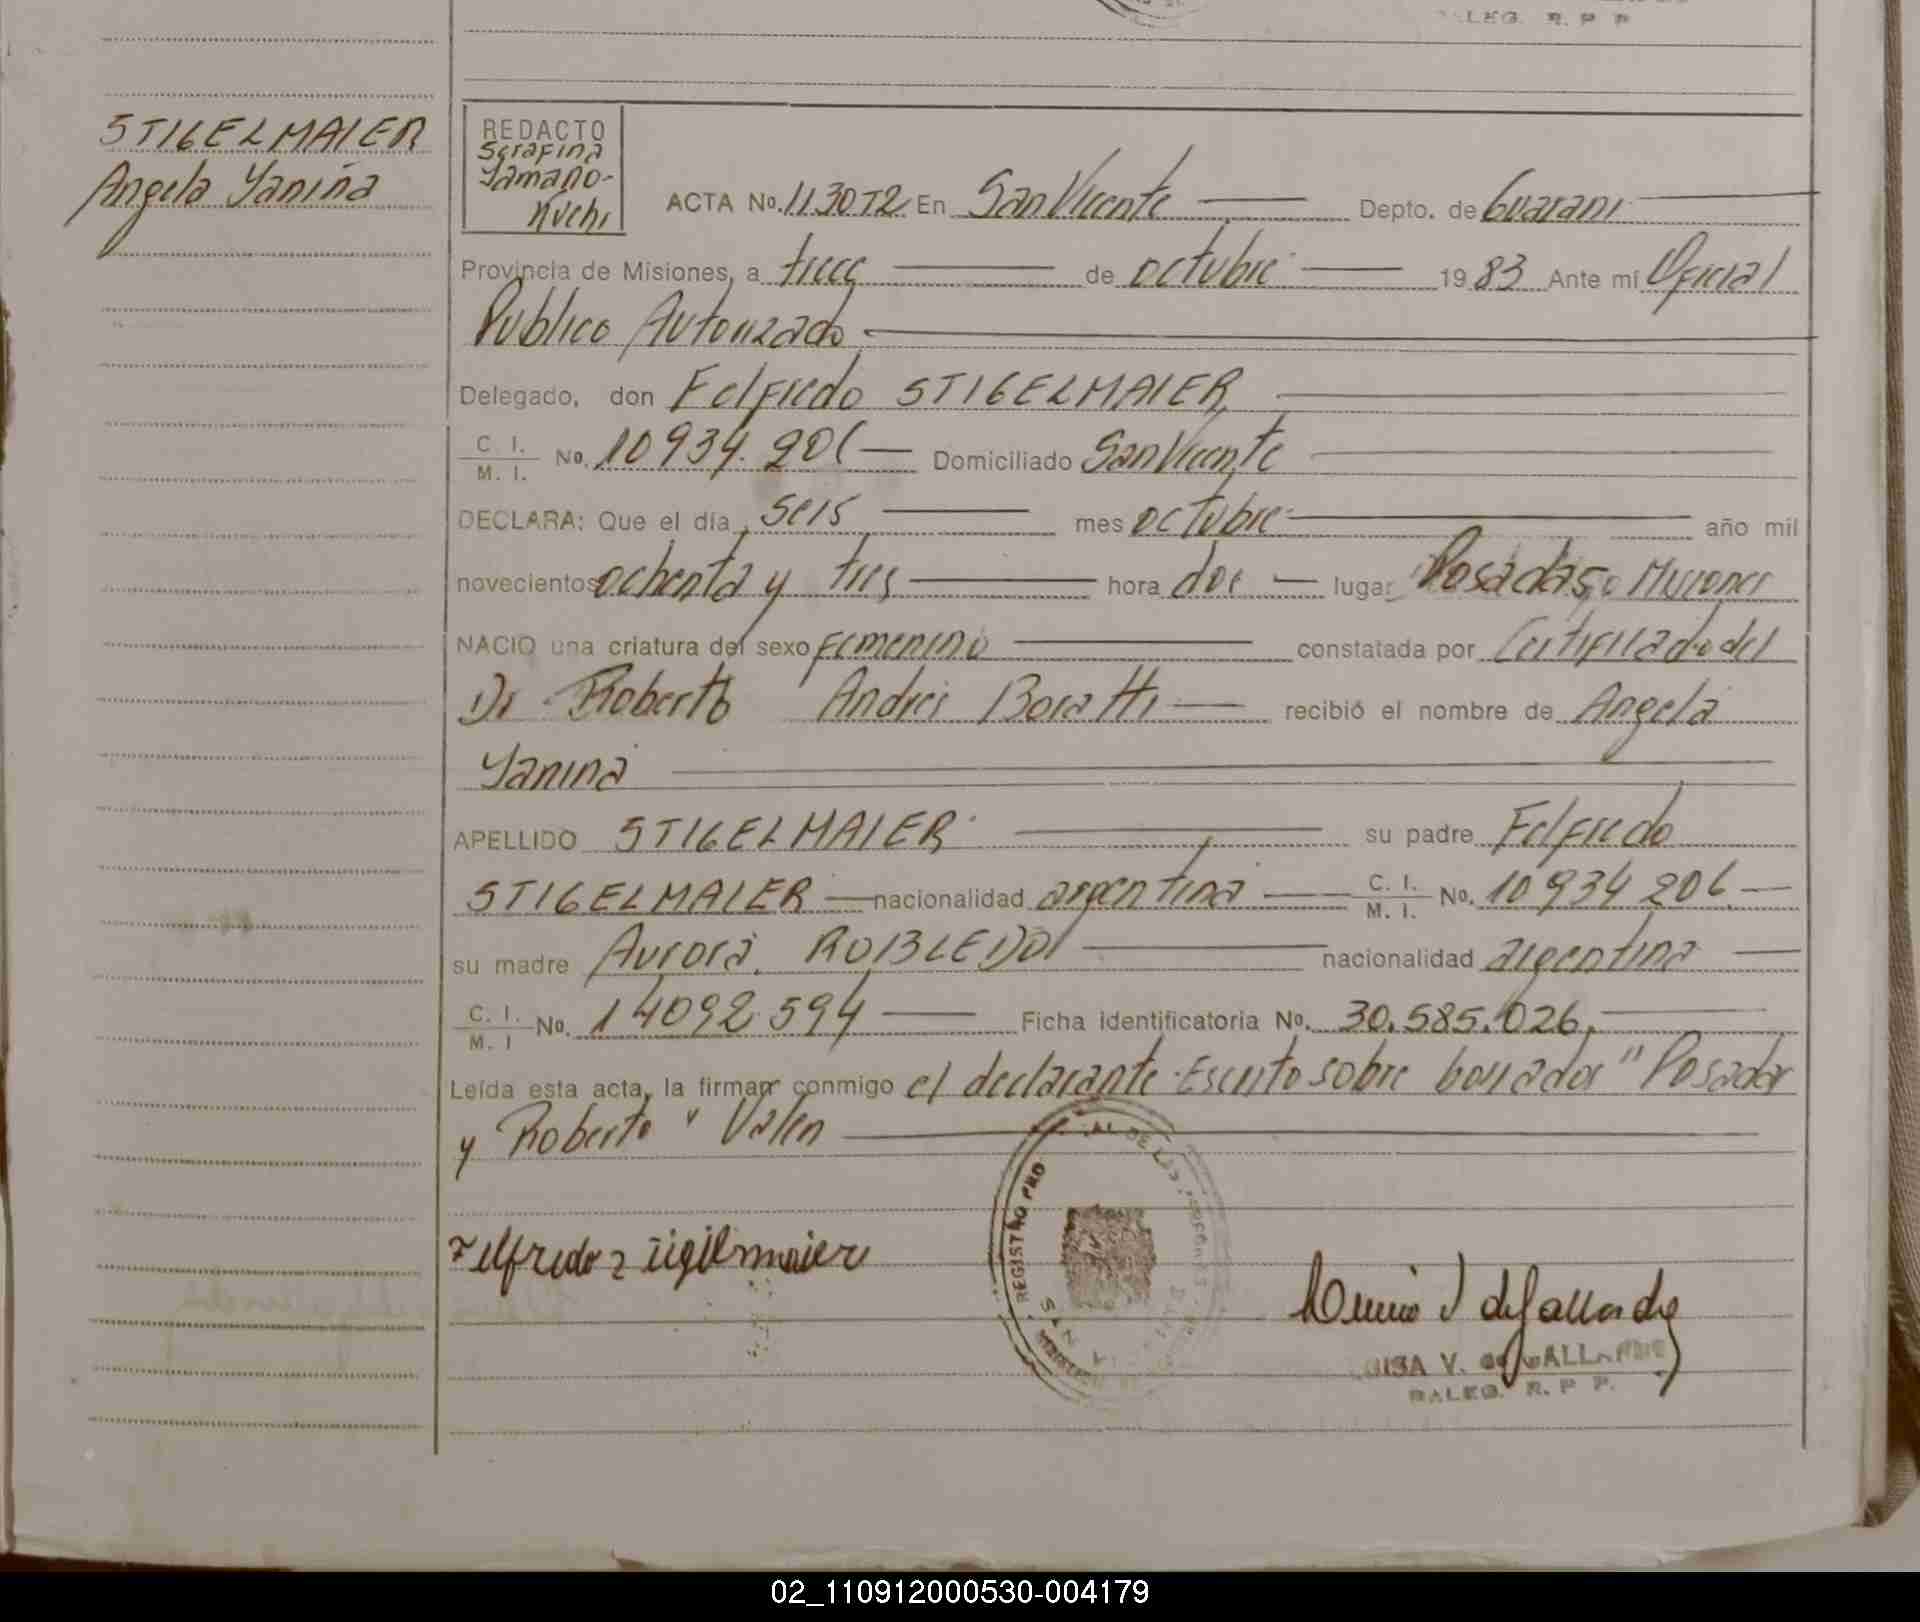 LEG. R. P P
STIGELMAIER
Angela Yanina
REDACTO
Serafina
Yamaño-
nuchi
ACTA No. 1130T2 En San Vicente Depto. de Guarani
Provincia de Misiones, a trece de octubre 1983 Ante mí Oficial
Publico Autorizado
Delegado, don Felfredo STIGELMAIER
C. I. M. I. No. 10934.206 Domiciliado San Vicente
DECLARA: Que el día seis mes octubre año mil
novecientos ochenta y tres hora dos lugar Posadas Misiones
NACIO una criatura del sexo femenino constatada por Certificado del
Dr Roberto Andres Boratti recibió el nombre de Angela
Yanina
APELLIDO STIGELMAIER su padre Felfredo
STIGELMAIER nacionalidad argentina C. I. M. I. No. 10934206
su madre Aurora ROBLEDO nacionalidad argentina
C. I. M. I No. 14092.594 Ficha identificatoria No. 30.585.026
Leída esta acta, la firman conmigo el declarante. Escrito sobre borrados "Posadas
y Roberto" Valen
REGISTRO PRO AL DE LAS PERSONAS
SAN
Felfredo Stigelmaier
V. de GALLARDO
R. P P.
02_110912000530-004179